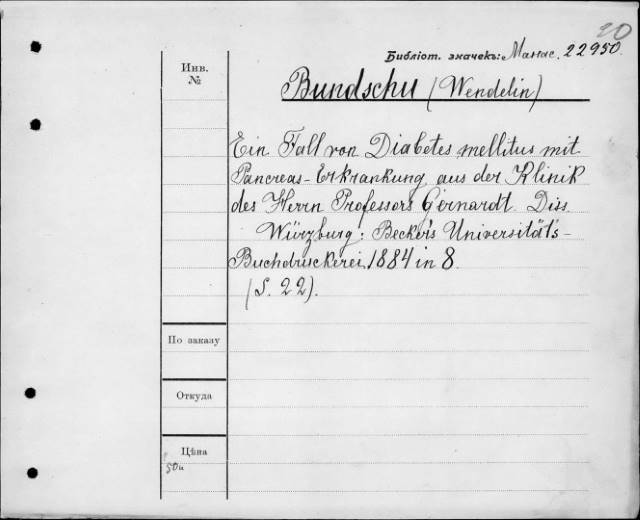 20
Библіот. значекъ: Манас. 22950.
Инв.
№
Bundschu (Wendelin)
Ein Fall von Diabetes mellitus mit
Pancreas-Erkrankung aus der Klinik
des Herrn Professors Gernardt. Diss.
Würzburg: Becker's Universitäts-
Buchdruckerei, 1884 in 8.
(S. 22).
По заказу
Откуда
Цѣна
50